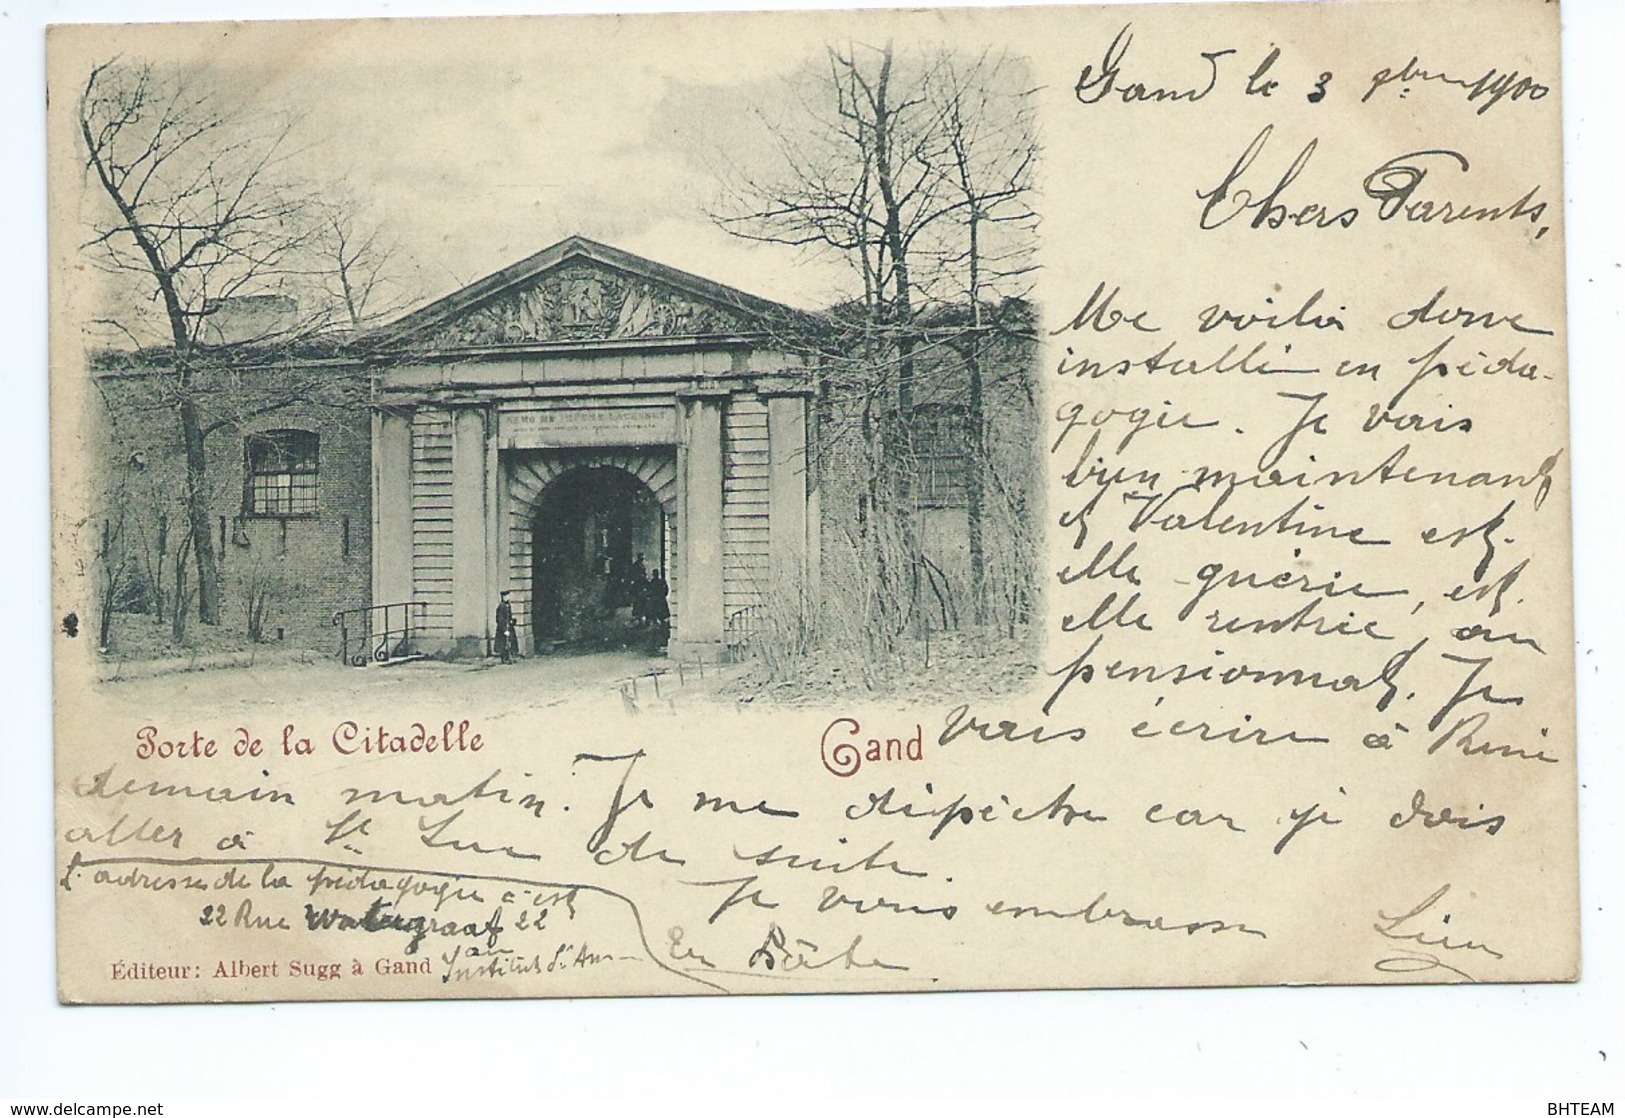 Gand le 3 9bre 1900
Chers Parents,
Me voilà donc
installée en péda-
gogie. Je vais
bien maintenant
et Valentine est-
elle guérie, est-
elle rentrée au
pensionnat. Je
vais écrire à René
Porte de la Citadelle
Gand
demain matin. Je me dépêche car je dois
aller à St Luc de suite.
Je vous embrasse
En hâte
L'adresse de la pédagogie c'est
22 Rue Watergraaf 22
Institut St
Éditeur: Albert Sugg à Gand
NEMO ME IMPUNE LACESSET
delcampe.net
BHTEAM